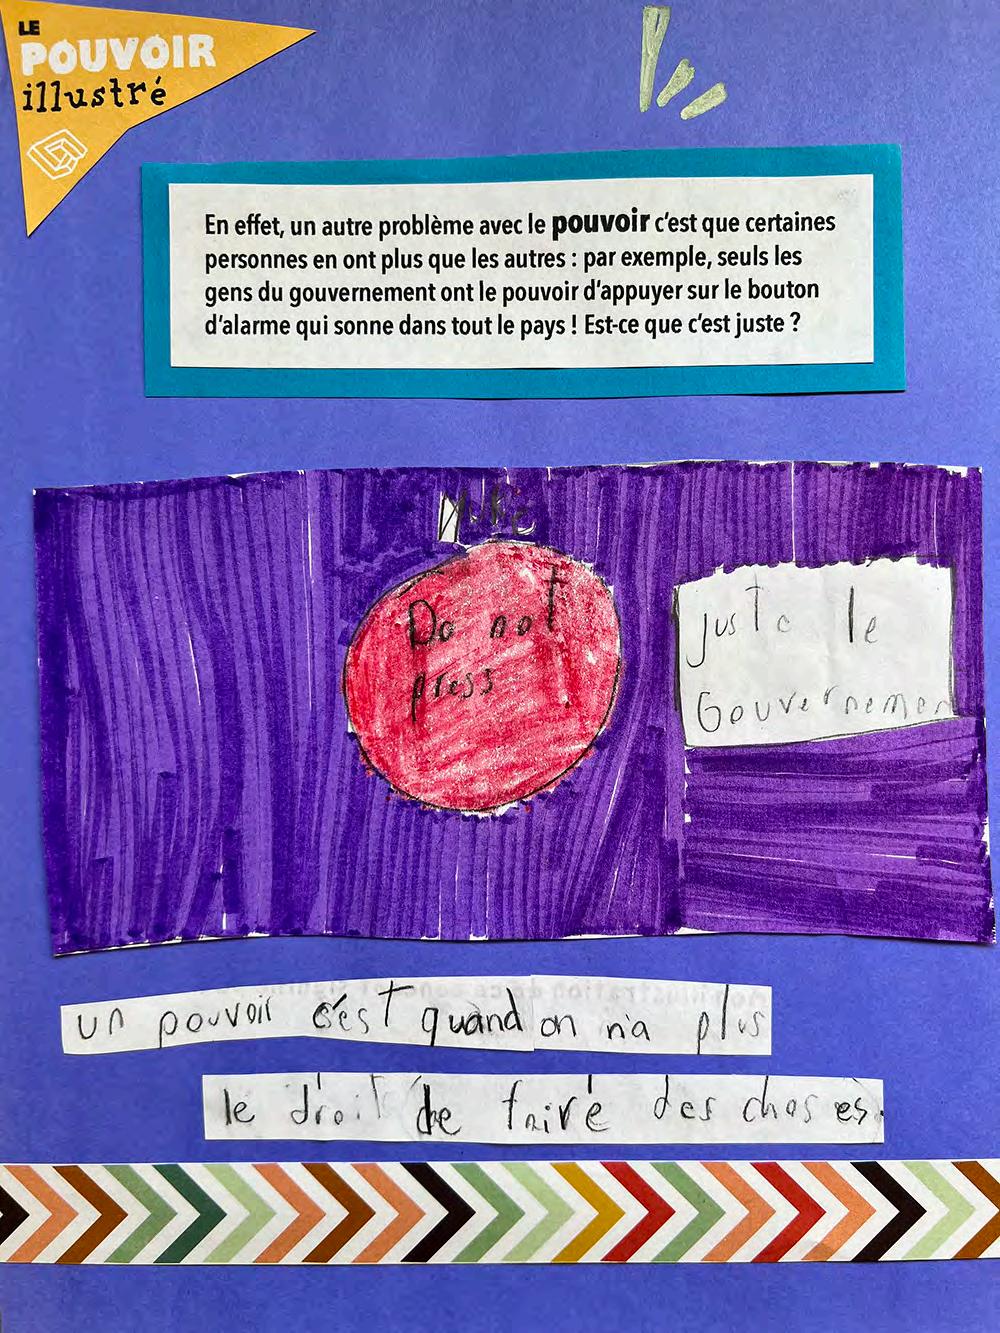 LE
POUVOIR
illustré
En effet, un autre problème avec le pouvoir c'est que certaines
personnes en ont plus que les autres : par exemple, seuls les
gens du gouvernement ont le pouvoir d'appuyer sur le bouton
d'alarme qui sonne dans tout le pays ! Est-ce que c'est juste ?
Do not
press
juste le
Gouvernemen
un pouvoir c'est quand on n'a plus
le droit de faire des choses.